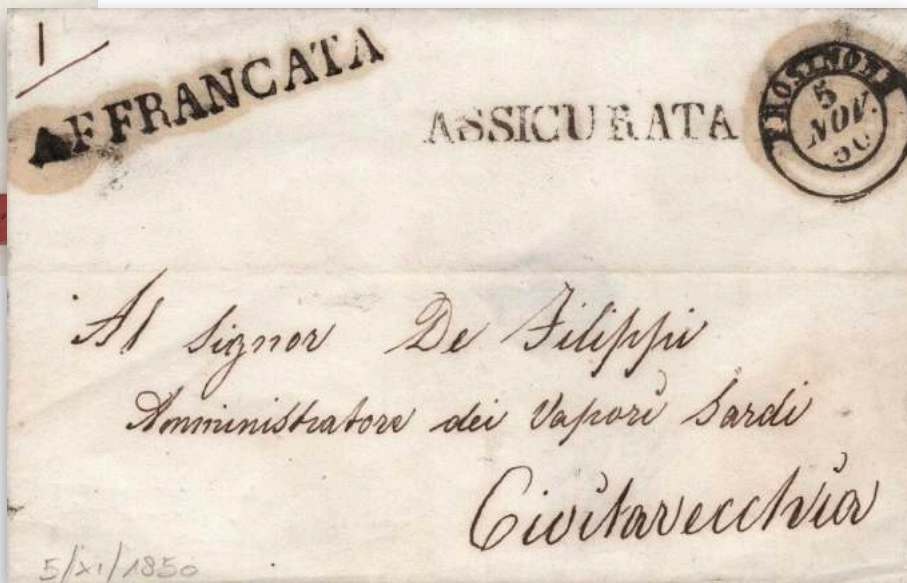 1
AFFRANCATA
ASSICURATA
FROSINONE
5
NOV.
50
Al Signor De Filippi
Amministratore dei Vapori Sardi
Civitavecchia
5/XI/1850